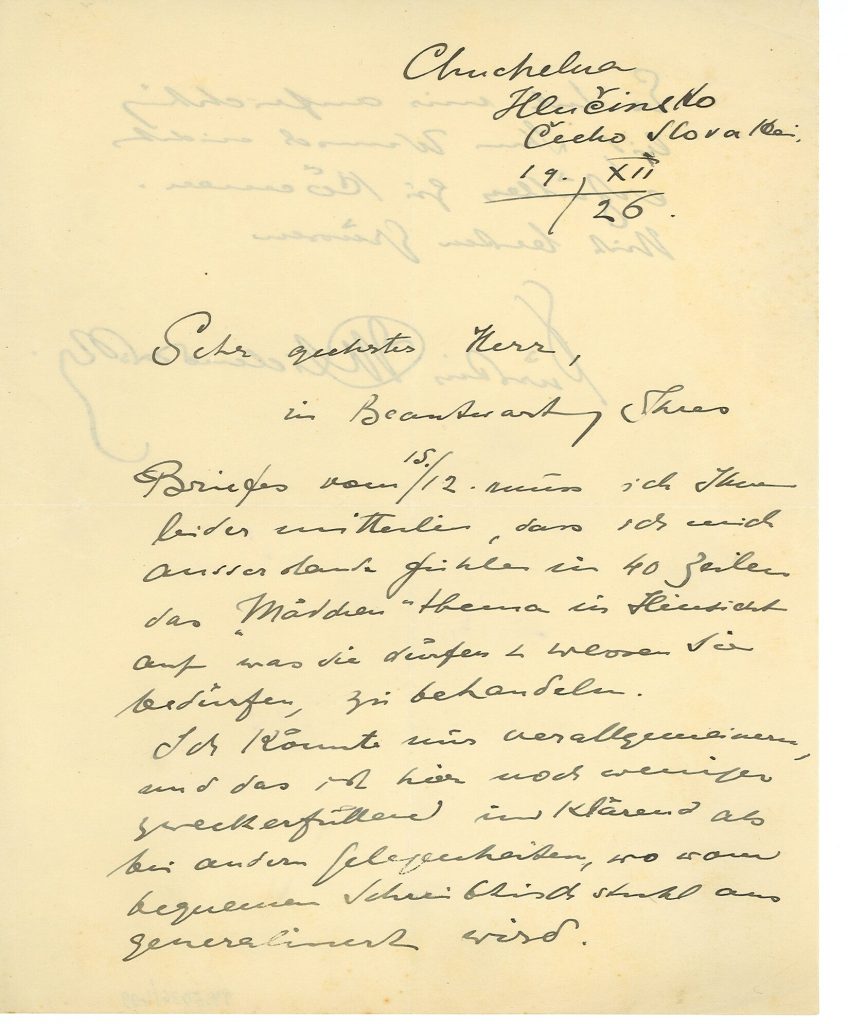 Chuchelna
Hlučinsko
Čecho Slovakei.
19. XII
26.
Sehr geehrter Herr,
in Beantwort Ihres
Briefes vom 15./12. muss ich Ihnen
leider mitteilen, dass ich mich
ausserstande fühle in 40 Zeilen
das "Mädchen" thema in Hinsicht
auf "was die dürfen & wessen Sie
bedürfen, zu behandeln.
Ich könnte nur verallgemeinern,
und das ist hier noch weniger
zweckerfüllend und klärend als
bei andern Gelegenheiten, wo vom
bequemen Schreibtischstuhl aus
generalisiert wird.